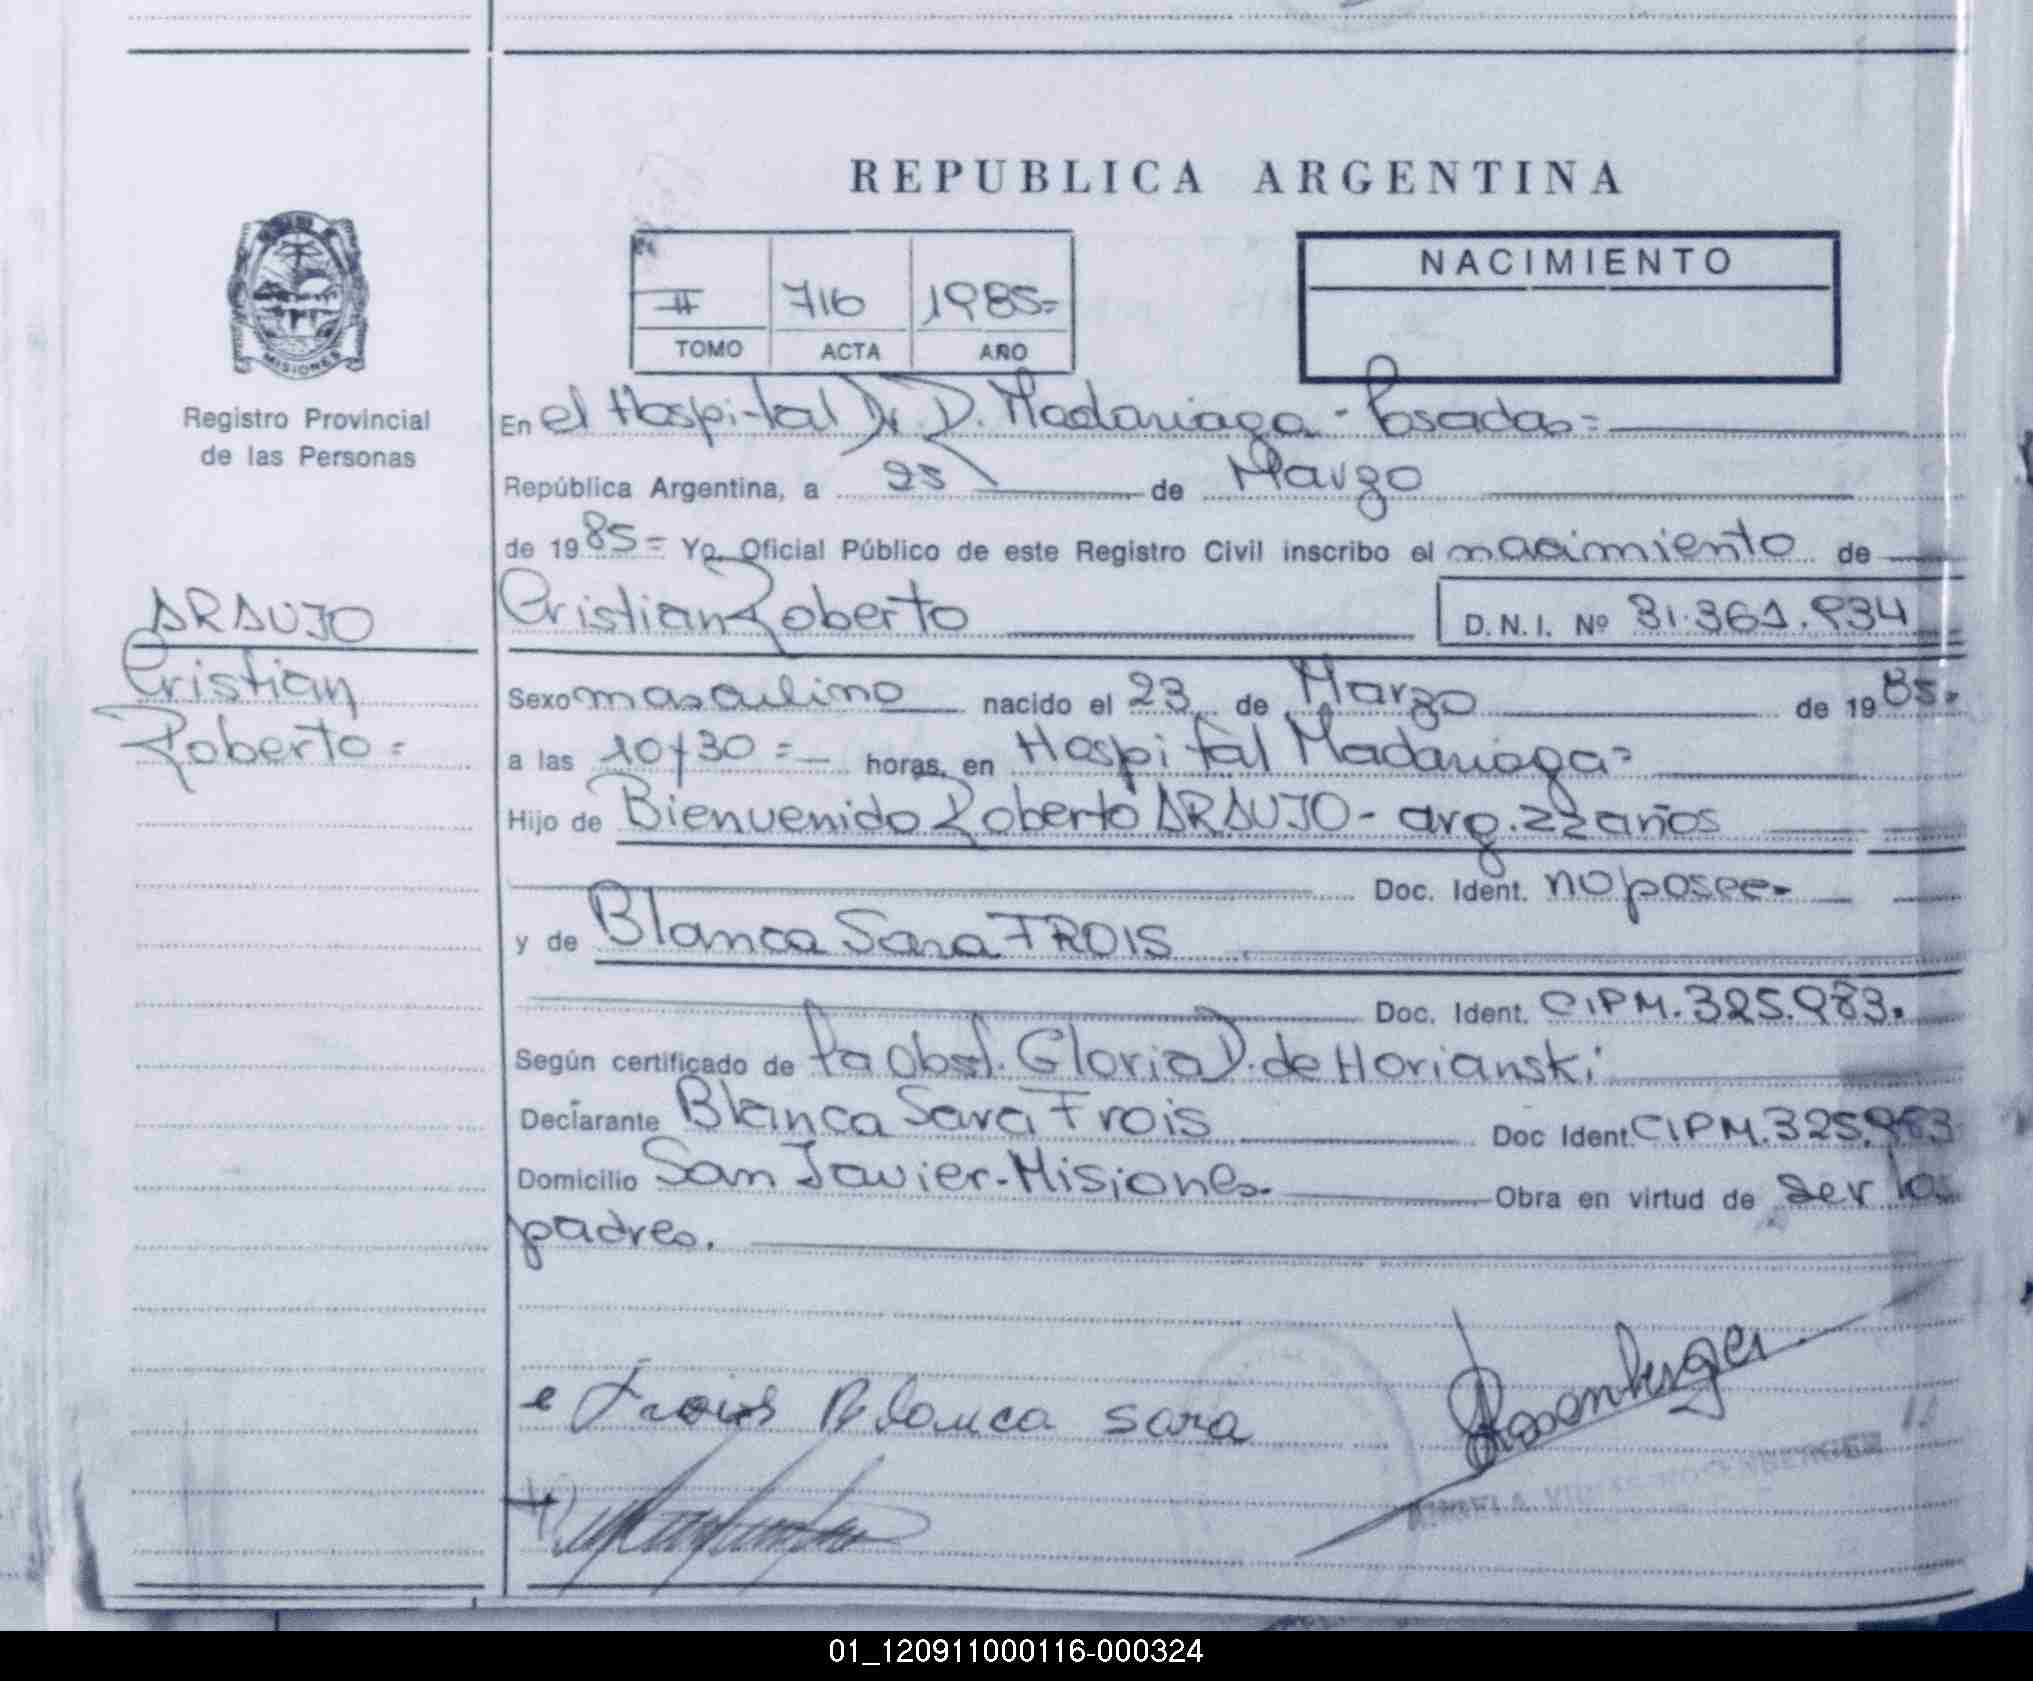 REPUBLICA ARGENTINA
NACIMIENTO
II 716 1985=
TOMO ACTA AÑO
MISIONES
Registro Provincial
de las Personas
ARAUJO
Cristian
Roberto =
En el Hospital Dr D. Madariaga - Posadas =
República Argentina, a 25 de Marzo
de 1985 = Yo, Oficial Público de este Registro Civil inscribo el nacimiento de
Cristian Roberto D.N.I. Nº 31.361.934
Sexo masculino nacido el 23 de Marzo de 1985.
a las 10y30 = horas, en Hospital Madariaga =
Hijo de Bienvenido Roberto ARAUJO - arg. 22 años
Doc. Ident. no posee.
y de Blanca Sara FROIS
Doc. Ident. CIPM. 325.983.
Según certificado de la Obst. Gloria D. de Horianski
Declarante Blanca Sara Frois Doc Ident. CIPM. 325.983
Domicilio San Javier - Misiones. Obra en virtud de ser los
padres.
Frois Blanca Sara
Rosenberger
ROSENBERGER
01_120911000116-000324